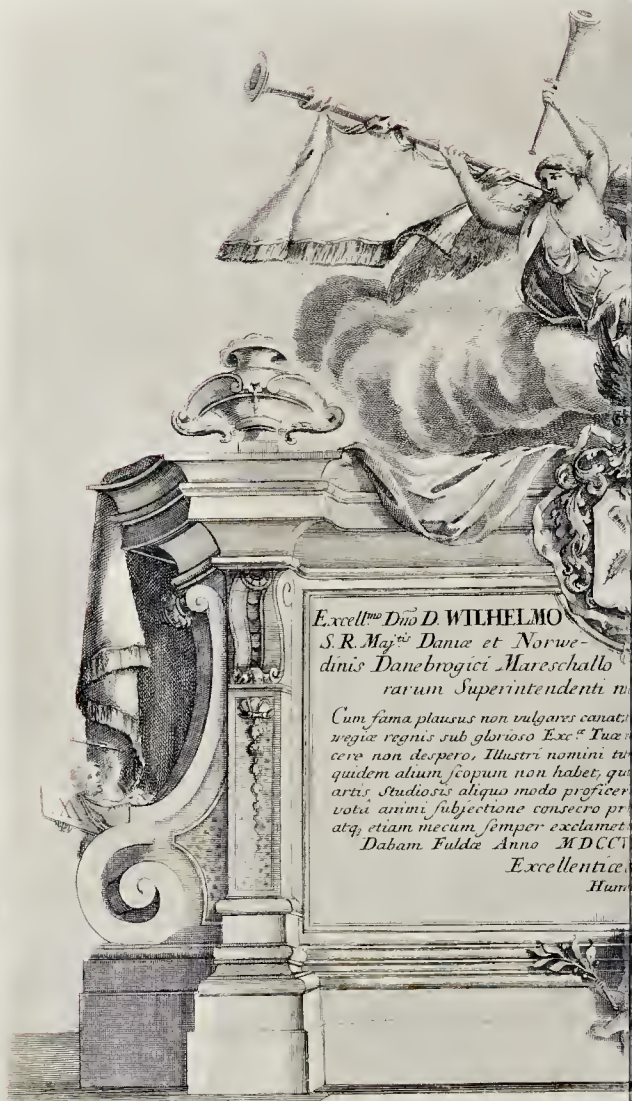 Excell.mo Dno D. WILHELMO
S. R. Maj.tis Daniæ et Norwe-
dinis Danebrogici Mareschallo
rarum Superintendenti
Cum fama plausus non vulgares canat,
wegiæ regnis sub glorioso Exc.æ Tuæ
cere non despero, Illustri nomini
quidem alium ſcopum non habet,
artis Studiosis aliquo modo
votâ animi ſubjectione consecro
atq; etiam mecum ſemper exclamet
Dabam Fuldæ Anno